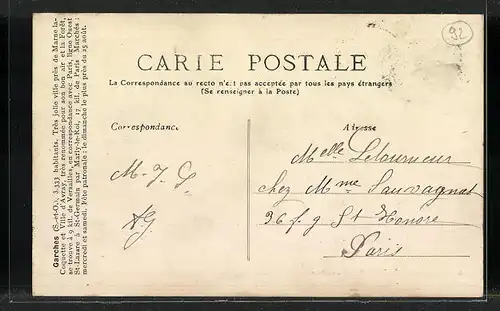 92
CARTE POSTALE
La Correspondance au recto n'est pas acceptée par tous les pays étrangers
(Se renseigner à la Poste)
Correspondance
Adresse
M. J. L.
AG
Melle Letourneur
chez Mme Sauvagnat
96 fg St Honore
Paris
Garches (S.-et-O.), 3.333 habitants. Très jolie ville près de Marne-la-
Coquette et Ville d'Avray, très renommée pour son bon air et la Forêt,
se trouve à 9 kil. de Versailles, en correspondance avec Paris, ligne Ouest
St-Lazare à St-Germain par Marly-le-Roi, 17 kil. de Paris Marchés :
mercredi et samedi. Fête patronale : le dimanche le plus près du 25 août.